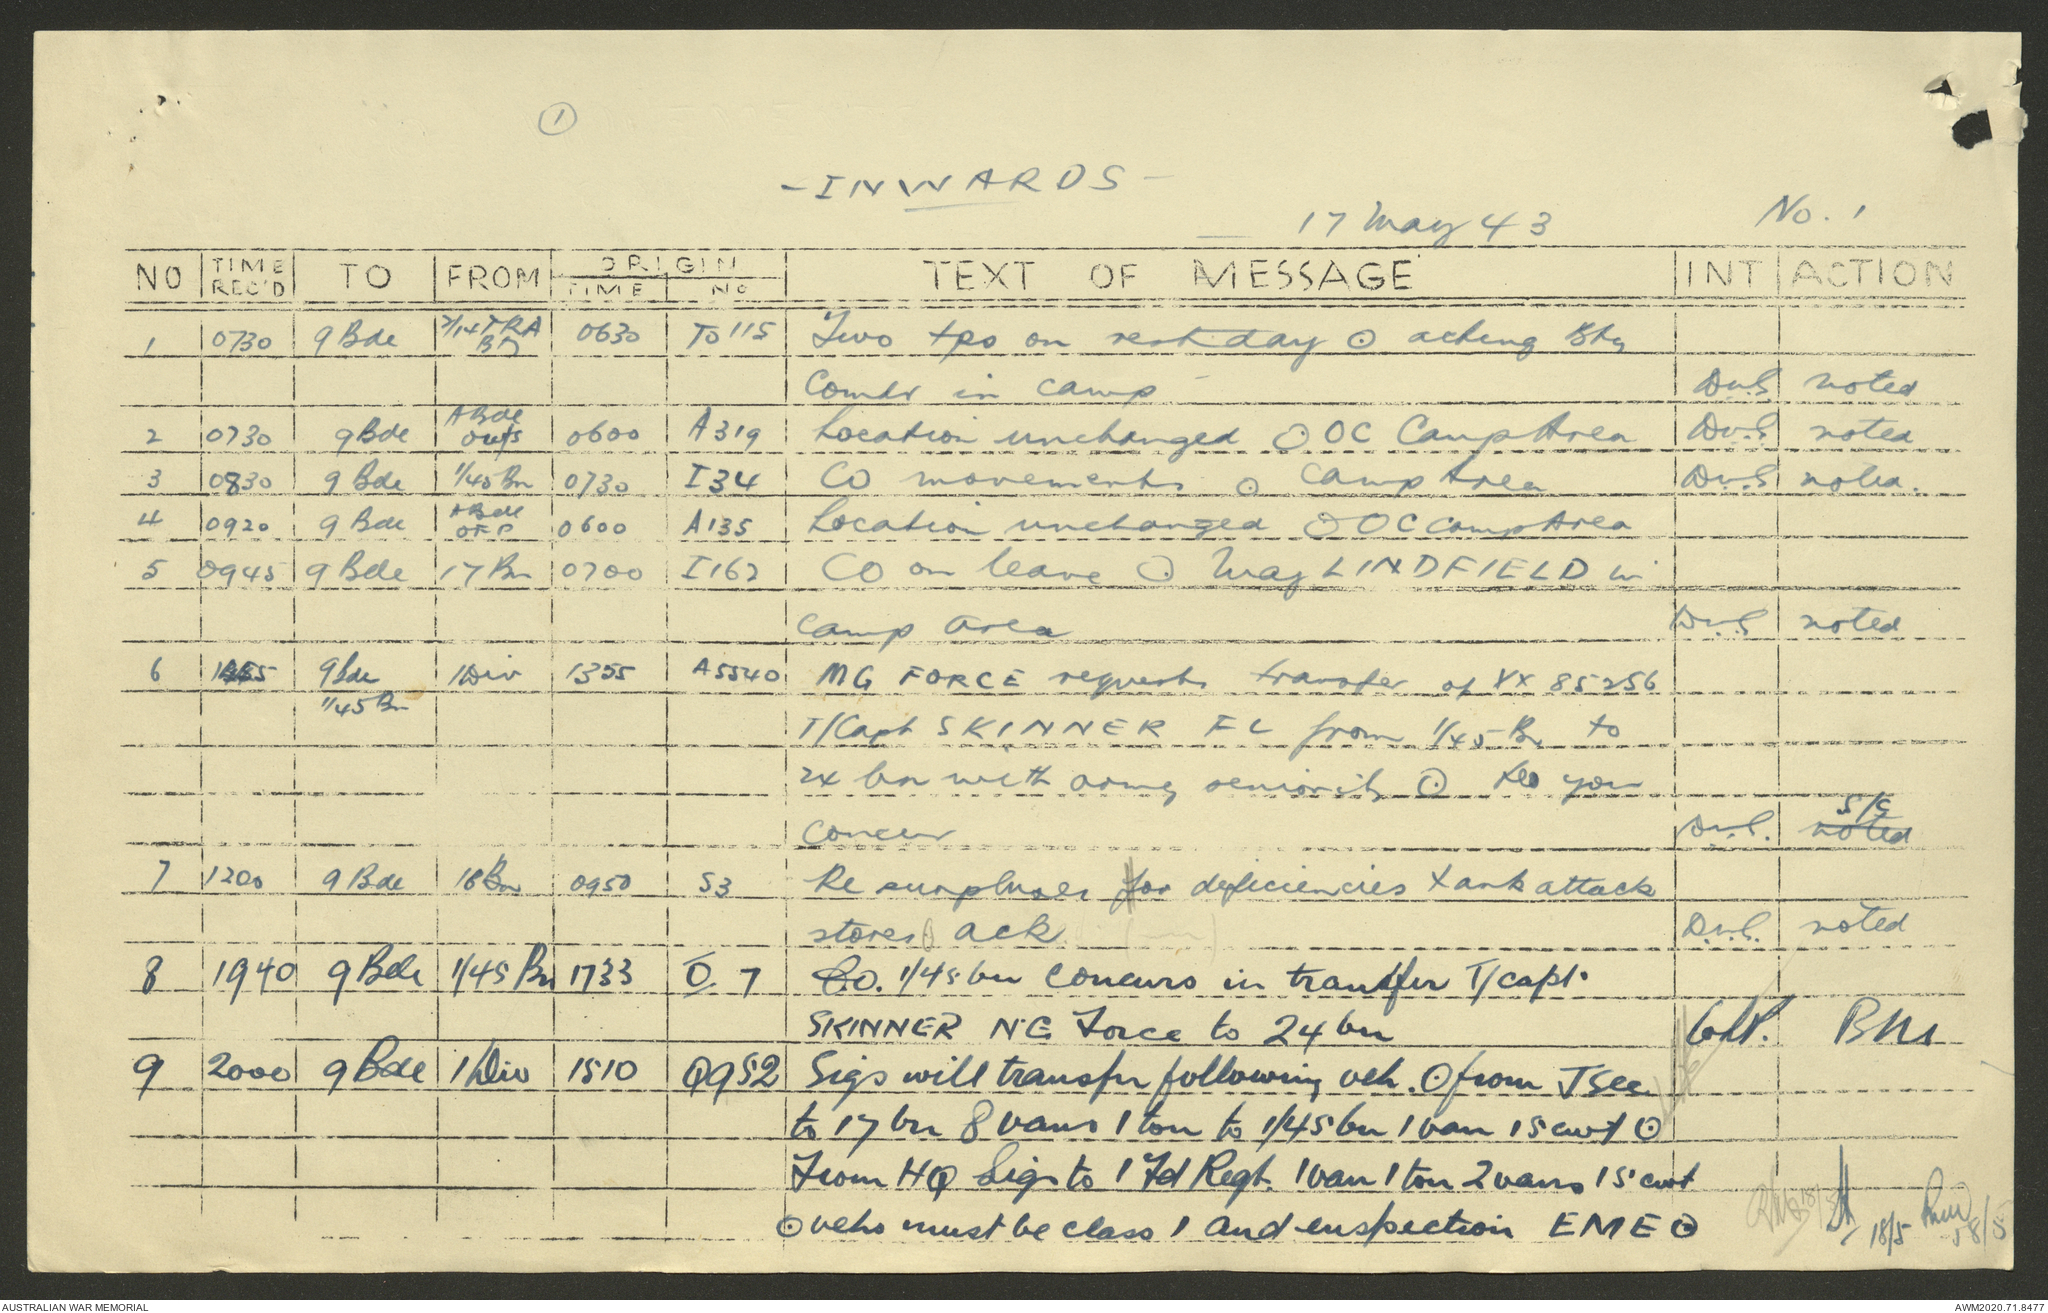 1
- INWARDS -
17 May 43
No. 1
NO | TIME REC'D | TO | FROM | ORIGIN TIME | ORIGIN No | TEXT OF MESSAGE | INT | ACTION
1 | 0730 | 9 Bde | Bn | 0630 | To 115 | Two tps on rest day ⊙ acting Bty
Comdr in camp - | D.v.S | noted
2 | 0730 | 9 Bde | ABde outs | 0600 | A319 | Location unchanged ⊙ OC Camp Area | D.v.S | noted
3 | 0830 | 9 Bde | 1/45 Bn | 0730 | I34 | CO movements ⊙ Camp Area | D.v.S | noted.
4 | 0920 | 9 Bde | ABde OFP | 0600 | A135 | Location unchanged ⊙ OC Camp Area
5 | 0945 | 9 Bde | 17 Bn | 0700 | I162 | CO on leave ⊙ Maj LINDFIELD in
camp area | D.v.S | noted
6 | 9 Bde | 1 Div | 1355 | A5540 | MG FORCE requests transfer of VX 85256
1/45 Bn | T/Capt SKINNER FL from 1/45 Bn to
24 bn with army seniority ⊙ Do you
S/C
concur | D.v.S. | noted
7 | 1200 | 9 Bde | 18 Bn | 0950 | S3 | Re surpluses for deficiencies tank attack
stores ack | D.v.S. | noted
8 | 1940 | 9 Bde | 1/45 Bn | 1733 | O. 7 | Co. 1/45 bn concurs in transfer T/capt.
SKINNER NG Force to 24 bn | BMs
9 | 2000 | 9 Bde | 1 Div | 1510 | Q952 | Sigs will transfer following veh. ⊙ from J Sec
to 17 bn 8 vans 1 ton to 1/45 bn 1 van 15 cwt ⊙
From HQ Sigs to 1 Fd Regt. 1 van 1 ton 2 vans 15 cwt
⊙ vehs must be class 1 and inspection EME ⊙
18/5
AUSTRALIAN WAR MEMORIAL
AWM2020.71.8477